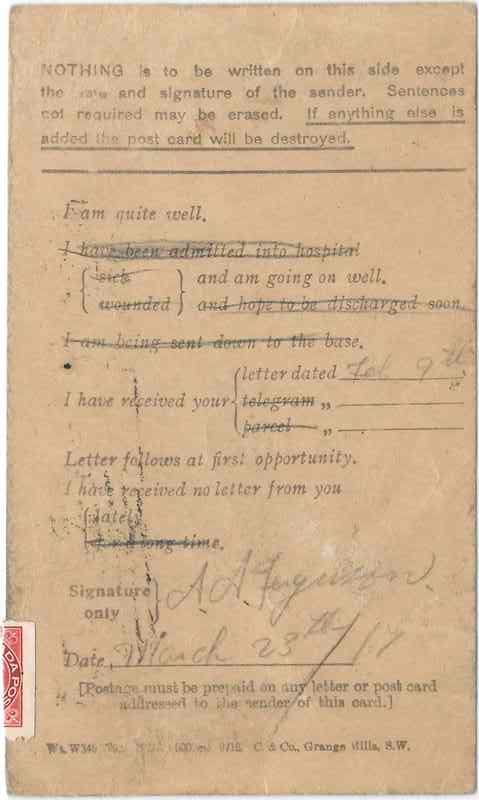 NOTHING is to be written on this side except
the date and signature of the sender. Sentences
not required may be erased. If anything else is
added the post card will be destroyed.
I am quite well.
I have been admitted into hospital
sick } and am going on well.
wounded } and hope to be discharged soon.
I am being sent down to the base.
letter dated Feb 9th
I have received your telegram „
parcel „
Letter follows at first opportunity.
I have received no letter from you
lately
for a long time.
Signature only } A A Ferguson
Date March 23th/17
[Postage must be prepaid on any letter or post card
addressed to the sender of this card.]
Wt. W346 9/16. C. & Co., Grange Mills, S.W.
DA PO